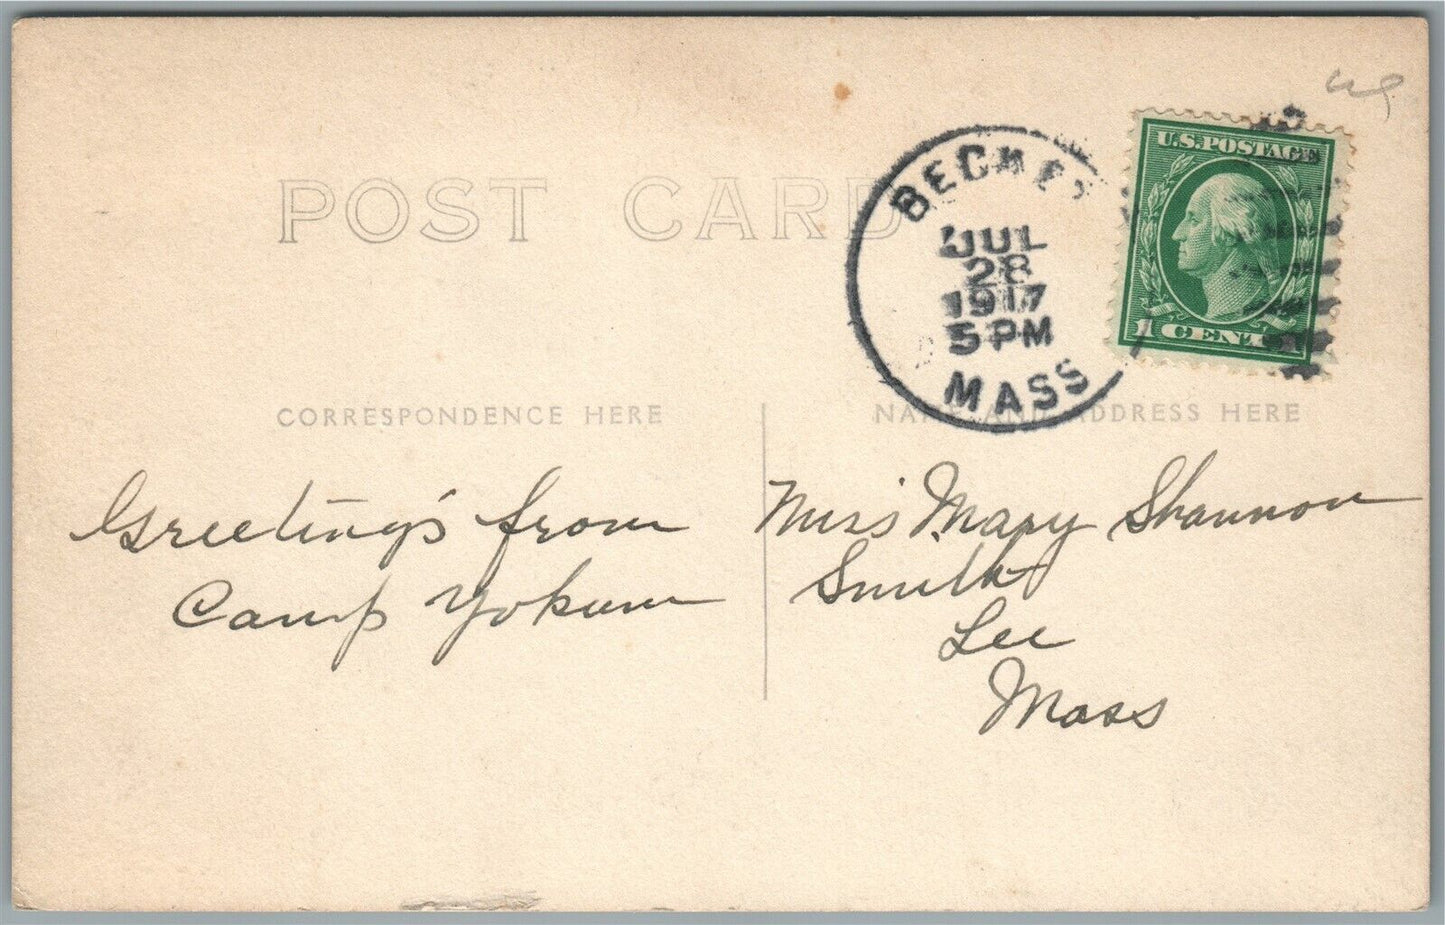 POST CARD
BECKET
JUL
28
1917
5 PM
MASS
U.S. POSTAGE
1 CENT 1
CORRESPONDENCE HERE
NAME AND ADDRESS HERE
Greeting's from
Camp Yokum
Miss Mary Shannon
Smith
Lee
Mass